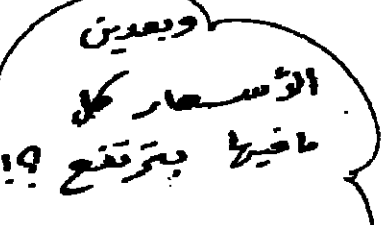 وبعدين
الأسعار كل
مافيها بترتفع ؟!